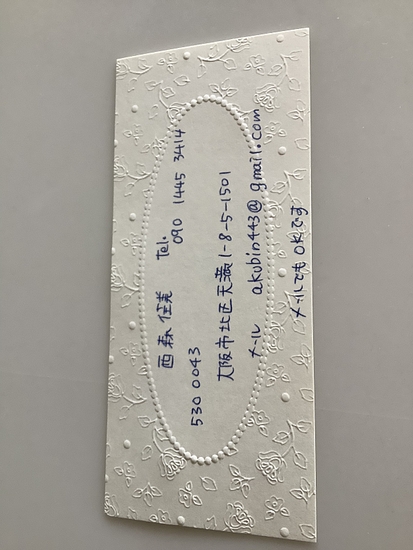 西森佳美 Tel.
090 1445 3414
530 0043
大阪市北区天満1-8-5-1501
メール akubin443@gmail.com
メールでもOKです